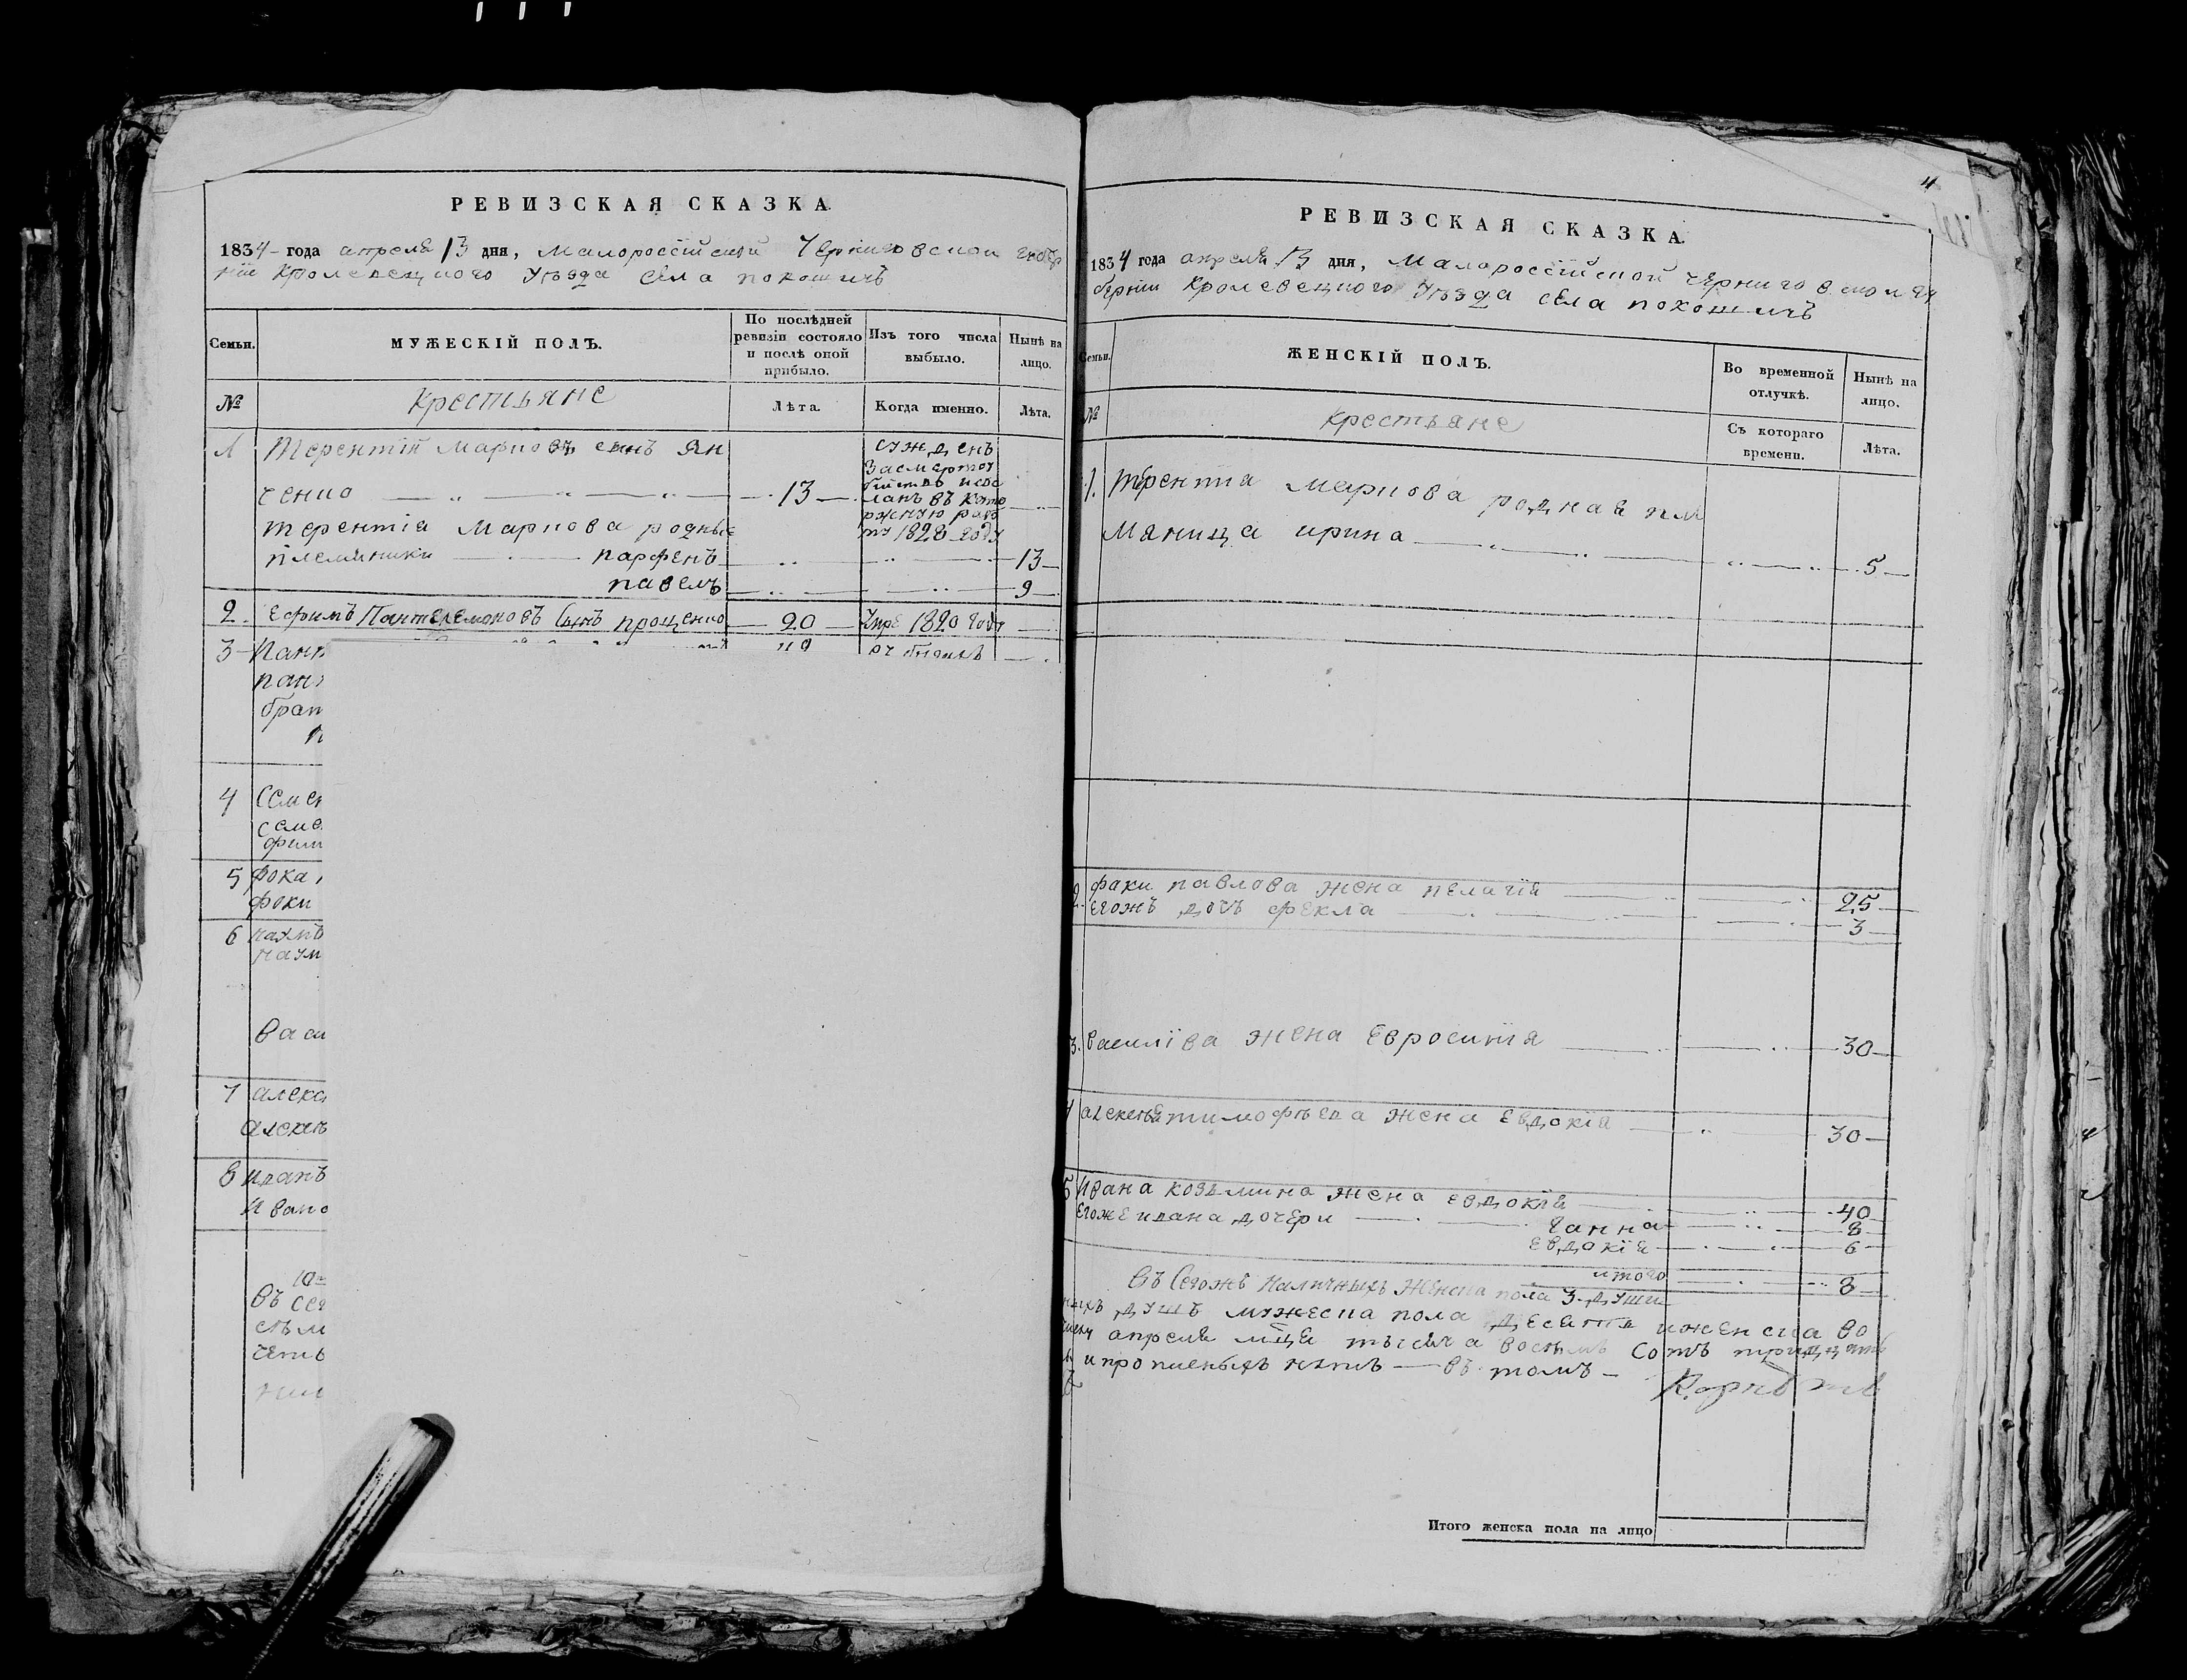 РЕВИЗСКАЯ СКАЗКА.
1834 года апреля 13 дня, малороссійской Черниговской губер
ніи Кролевецкого Уѣзда села покошичъ
Семьи.
МУЖЕСКІЙ ПОЛЪ.
По послѣдней ревизіи состояло и послѣ оной прибыло.
Изъ того числа выбыло.
Нынѣ на лицо.
№
крестьяне
Лѣта.
Когда именно.
Лѣта.
1 Терентій марковъ сынъ Ян
ченко 13
сужденъ
засмерто
ланъ въ като
ржную рабо
ту 1828 году
терентія Маркова родные
племяники парфенъ 13
павелъ 9
2. Ефимъ Пантелемоновъ сынъ проценко 20 Умре 1820 году
3
пан
брат
4 Семен
семе
фили
5 фока
фоки
6
наум
васи
7 алекс
алекѣ
8 иванъ
Ивано
въ сей
РЕВИЗСКАЯ СКАЗКА.
4
1834 года апреля 13 дня, малороссійской черниговской гу
берніи Кролевецкого Уѣзда села покошичъ
Семьи.
ЖЕНСКІЙ ПОЛЪ.
Во временной отлучкѣ.
Нынѣ на лицо.
№
крестьяне
Съ котораго времени.
Лѣта.
1. терентіа маркова родная пле
мяница ирина 5
2. факи павлова жена пелагія 25
егожъ дочь фекла 3
3. василіва жена Евросинія 30
4 алексѣя тимофѣева жена Евдокія 30
5 Ивана козьмина жена евдокія 40
егоже ивана дочери ганна 8
евдокіе 6
итого 8
въ сегожъ наличныхъ женска пола 3 души
душъ мужеска пола десять иженска во
апреля мца тысяча восемъ сотъ тридцать
ипрописныхъ нѣтъ въ томъ
Итого женска пола на лицо